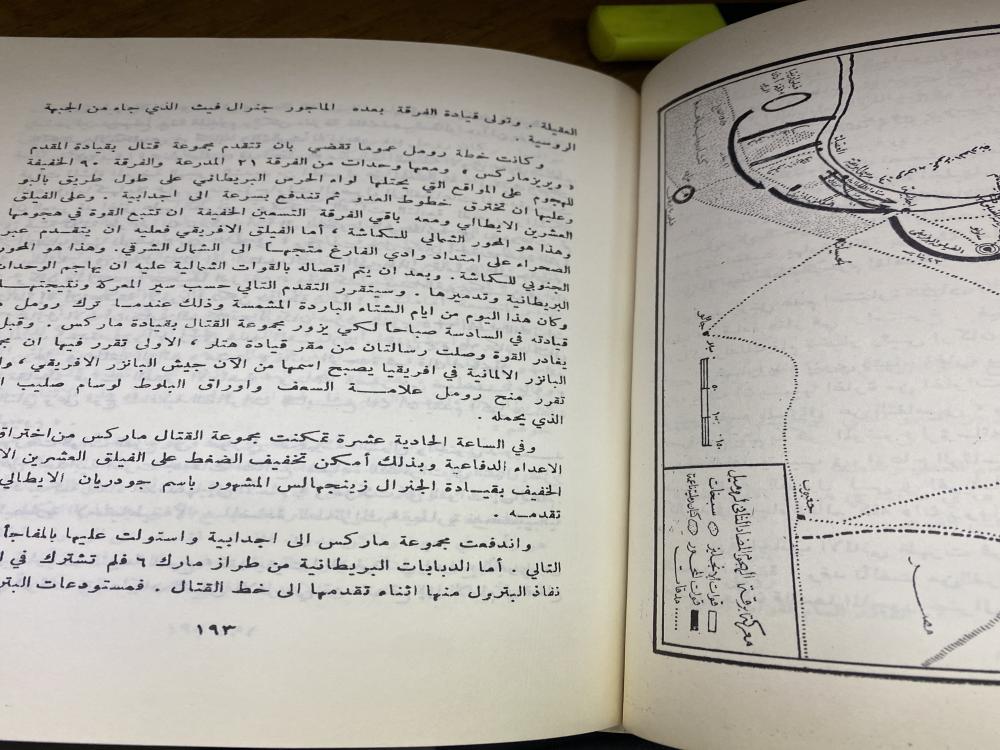 العقيلة . وتولى قيادة الفرقة بعده الماجور جنرال فيث الذي جاء من الجبهة
الروسية .
وكانت خطة رومل عموما تقضي بان تتقدم مجموعة قتال بقيادة المقدم
« ويرنرماركس » ومعها وحدات من الفرقة ٢١ المدرعة والفرقة ٩٠ الخفيفة
للهجوم على المواقع التي يحتلها لواء الحرس البريطاني على طول طريق بالبو
وعليها ان تخترق خطوط العدو ثم تندفع بسرعة الى اجدابية . وعلى الفيلق
العشرين الايطالي ومعه باقي الفرقة التسعين الخفيفة ان تتبع القوة في هجومها
وهذا هو المحور الشمالي للكماشة ، أما الفيلق الافريقي فعليه ان يتقدم عبر
الصحراء على امتداد وادي الفارغ متجها الى الشمال الشرقي. وهذا هو المحور
الجنوبي للكماشة . وبعد ان يتم اتصاله بالقوات الشمالية عليه ان يهاجم الوحدات
البريطانية وتدميرها . وسيتقرر التقدم التالي حسب سير المعركة ونتيجتها
وكان هذا اليوم من ايام الشتاء الباردة المشمسة وذلك عندما ترك رومل
قيادته في السادسة صباحا لكي يزور مجموعة القتال بقيادة ماركس . وقبل
يغادر القوة وصلت رسالتان من مقر قيادة هتلر ، الاولى تقرر فيها ان
البانزر الالمانية في افريقيا يصبح اسمها من الآن جيش البانزر الافريقي ،
تقرر منح رومل علامة السعف واوراق البلوط لوسام صليب
الذي يحمله .
وفي الساعة الحادية عشرة تمكنت مجموعة القتال ماركس من اختراق
الاعداء الدفاعية وبذلك أمكن تخفيف الضغط على الفيلق العشرين
الخفيف بقيادة الجنرال زينجهالس المشهور باسم جودريان الايطالي
تقدمه .
واندفعت مجموعة ماركس الى اجدابية واستولت عليها بالمفاجأ
التالي . أما الدبابات البريطانية من طراز مارك ٦ فلم تشترك في
نفاذ البترول منها اثناء تقدمها الى خط القتال . فمستودعات
١٩٣
جالو
ميل
٠
٥٠
١٠٠
١٥٠
جغبوب
مصر
معركة برقة الهجوم المضاد الثاني لروميل
قوات الانجليز
سبخات
قوات المحور
كثبان رملية ناعمة
مدقات